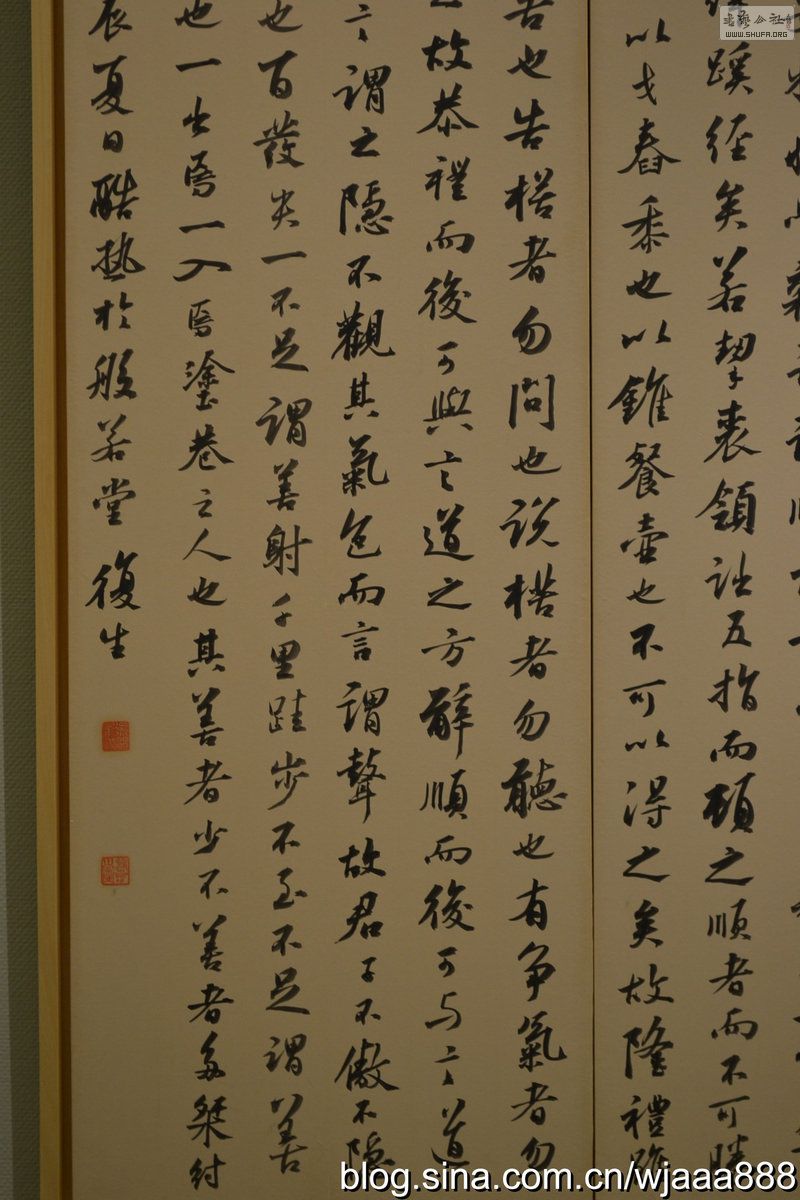 蹊徑矣若挈裘領詘五指而頓之順者而不可勝
以戈舂黍也以錐餐壺也不可以得之矣故隆禮雖
告也告楛者勿問也說楛者勿聽也有爭氣者勿
故恭禮而後可與言道之方辭順而後可与言道
言謂之隱不觀其氣色而言謂瞽故君子不傲不隱
也百發失一不足謂善射千里跬步不至不足謂善
也一出焉一入焉塗巷之人也其善者少不善者多桀紂
辰夏日酷熱於般若堂 復生
WWW.SHUFA.ORG
blog.sina.com.cn/wjaaa888